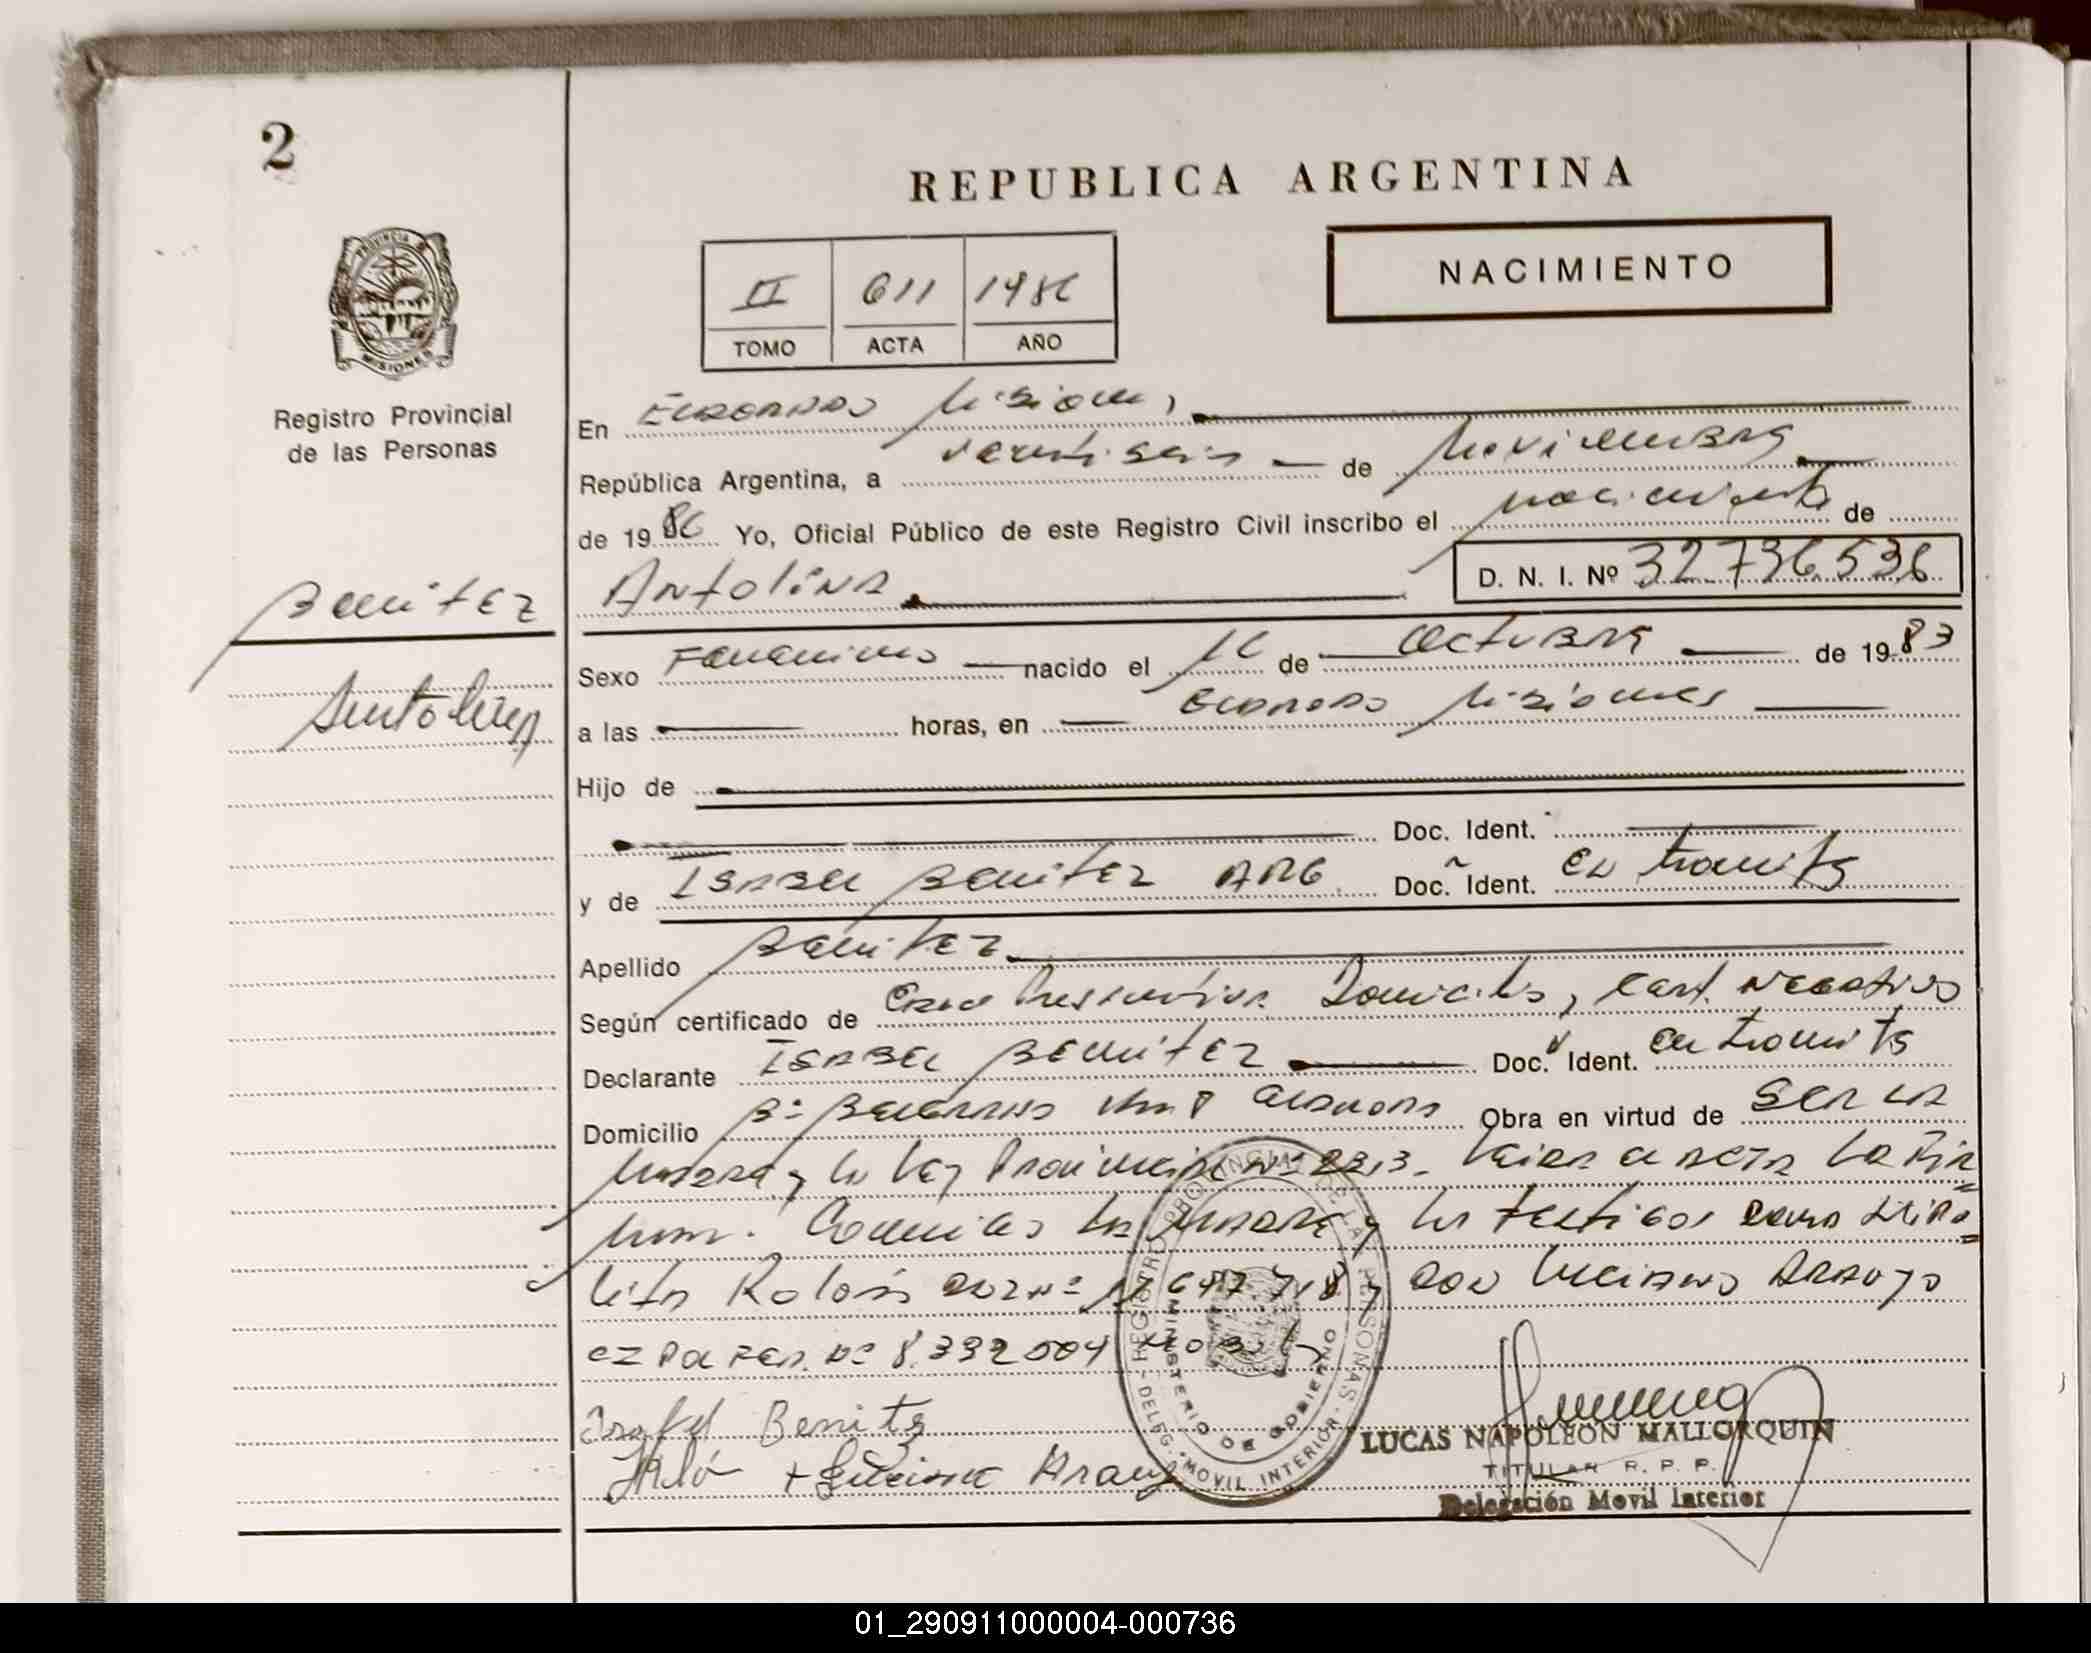 2
REPUBLICA ARGENTINA
NACIMIENTO
II 611 1986
TOMO ACTA AÑO
PROVINCIA DE MISIONES
Registro Provincial
de las Personas
En Eldorado Misiones,
República Argentina, a veintiseis de Noviembre
de 1986 Yo, Oficial Público de este Registro Civil inscribo el nacimiento de
Antolina
D. N. I. Nº 32.736.536
Benitez
Antolina
Sexo Femenino nacido el 16 de Octubre de 1983
a las horas, en Eldorado Misiones
Hijo de
Doc. Ident.
y de Isabel Benitez ARG. Doc. Ident. en tramite
Apellido Benitez
Según certificado de Domicilio, Cert. Negativo
Declarante Isabel Benitez Doc. Ident. en tramite
Domicilio Bº Eldorado Obra en virtud de ser la
Madre y la Ley Provincial Nº Leida el acta la fir
man. la Madre y los testigos
y don Luciano Araujo
Nº 8.332.504
Isabel Benitez
+ Luciano Arauj
REGISTRO PROVINCIAL DE LAS PERSONAS
DELEG. MOVIL INTERIOR
MINISTERIO DE GOBIERNO
LUCAS NAPOLEON MALLORQUIN
TITULAR R. P. P.
Delegación Movil Interior
01_290911000004-000736